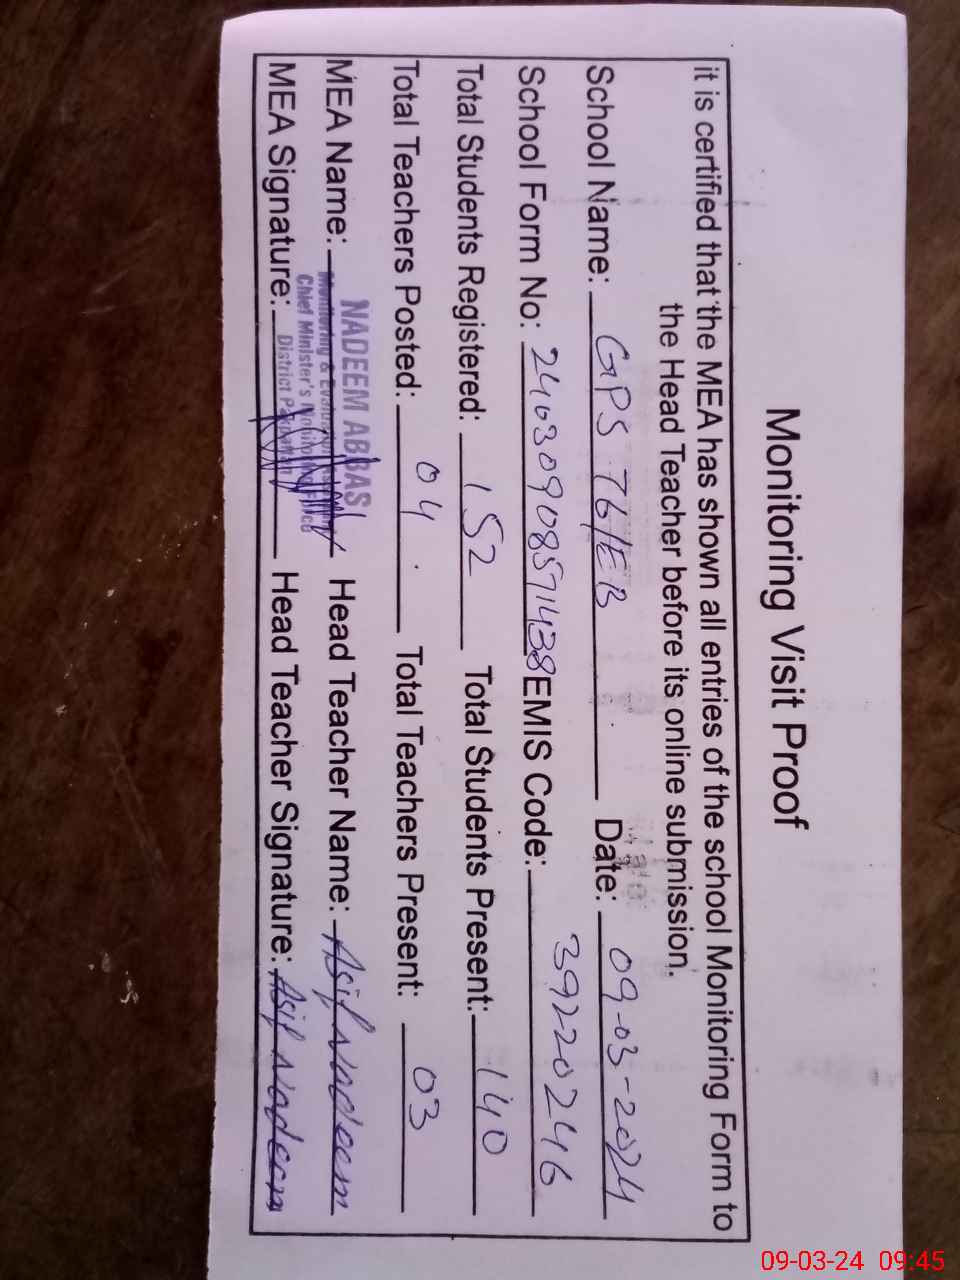 Monitoring Visit Proof
it is certified that the MEA has shown all entries of the school Monitoring Form to
the Head Teacher before its online submission.
School Name: GPS 76/EB Date: 09-03-2024
School Form No: 24030908571438 EMIS Code: 39220246
Total Students Registered: 152 Total Students Present: 140
Total Teachers Posted: 04 Total Teachers Present: 03
MEA Name: NADEEM ABBAS Head Teacher Name: Asif Nadeem
Monitoring & Evaluation
Chief Minister's Monitoring Force
District Pakpattan
MEA Signature: Head Teacher Signature: Asif Nadeem
09-03-24 09:45